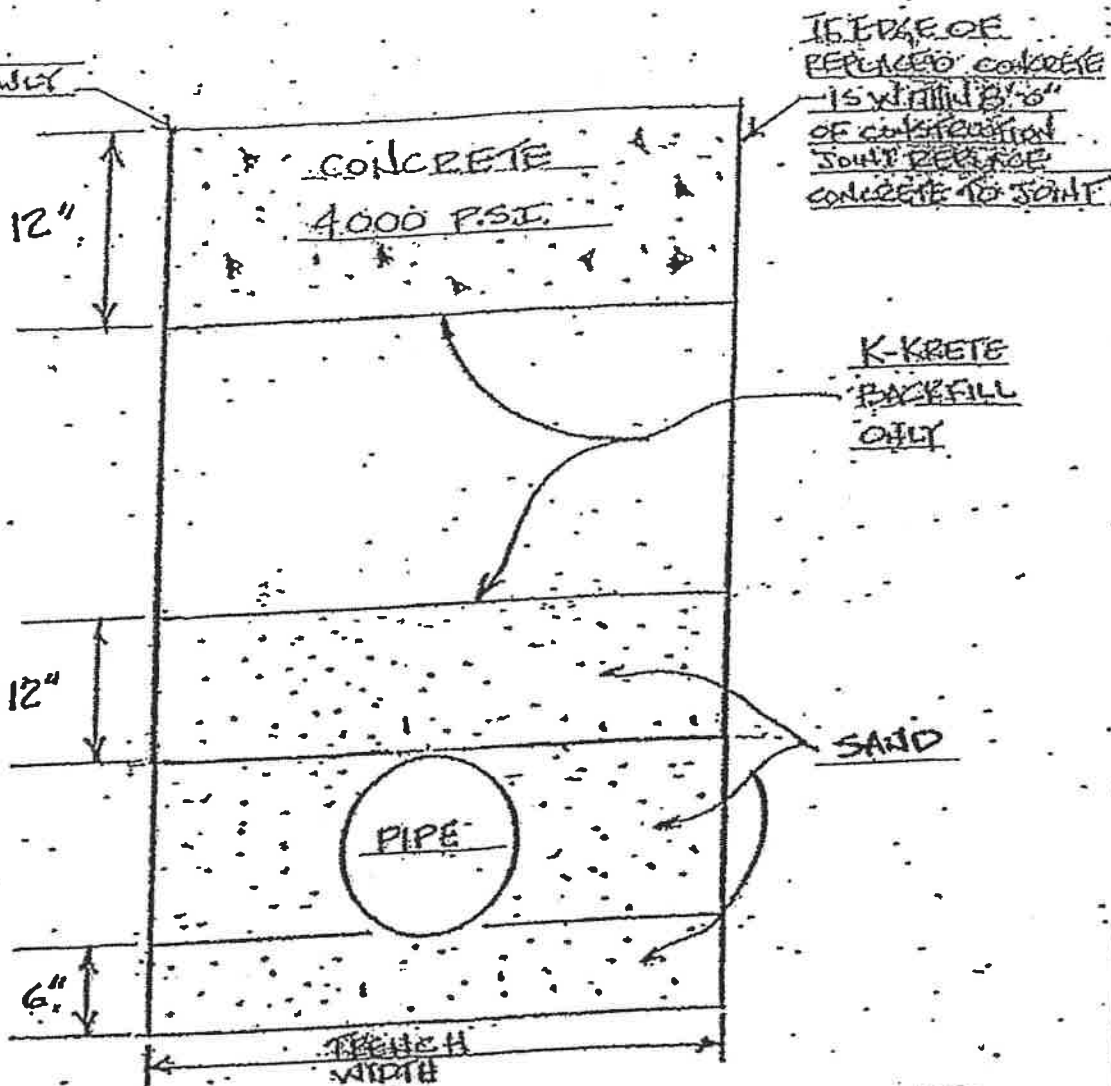 IF EDGE OF
REPLACED CONCRETE
IS WITHIN 8'-0"
OF CONSTRUCTION
JOINT REPLACE
CONCRETE TO JOINT
CONCRETE
4000 P.S.I.
12"
K-KRETE
BACKFILL
ONLY
12"
SAND
PIPE
6"
TRENCH
WIDTH